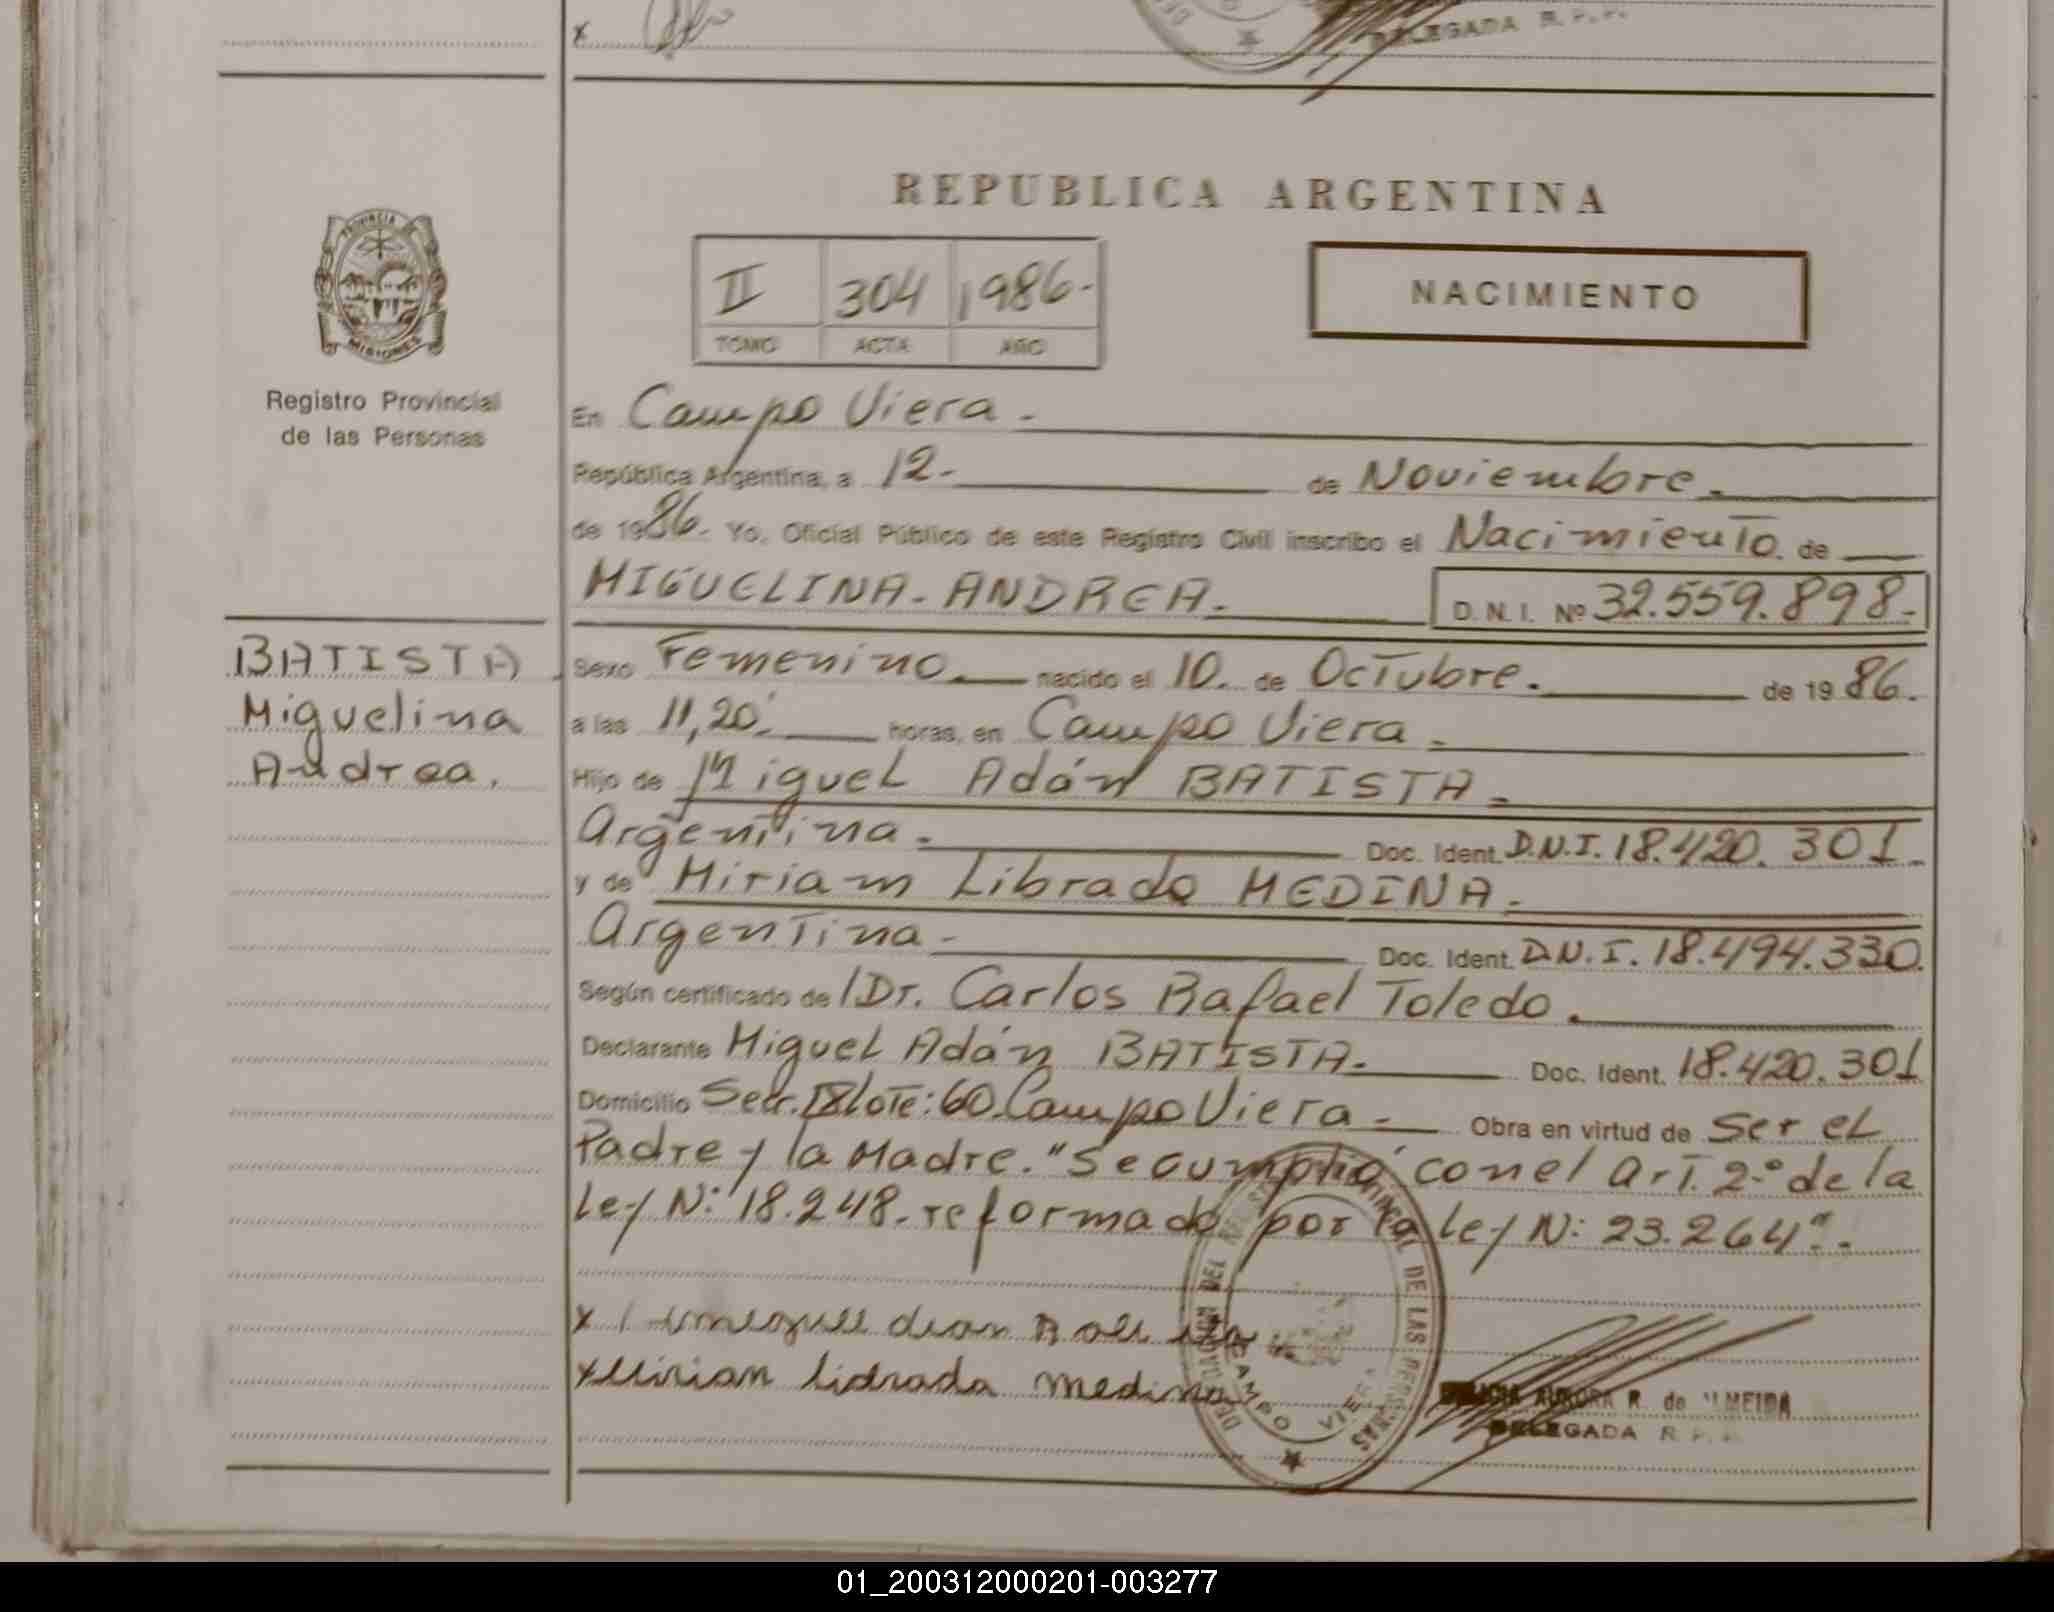 x
DELEGADA R. P. P.
REPUBLICA ARGENTINA
PROVINCIA DE
MISIONES
II 304 1986.-
TOMO ACTA AÑO
NACIMIENTO
Registro Provincial
de las Personas
En Campo Viera.-
República Argentina, a 12.- de Noviembre.-
de 1986.- Yo, Oficial Público de este Registro Civil inscribo el Nacimiento. de
MIGUELINA - ANDREA.- D. N. I. Nº 32.559.898.-
BATISTA
Miguelina
Andrea.
Sexo Femenino.- nacido el 10. de Octubre.- de 1986.
a las 11,20'.- horas, en Campo Viera.-
Hijo de Miguel Adán BATISTA.-
Argentina.- Doc. Ident. D.N.I. 18.420.301.-
y de Miriam Librada MEDINA.-
Argentina.- Doc. Ident. D.N.I. 18.494.330.
Según certificado de Dr. Carlos Rafael Toledo.-
Declarante Miguel Adán BATISTA.- Doc. Ident. 18.420.301
Domicilio Secc. IX lote: 60. Campo Viera.- Obra en virtud de Ser el
Padre y la Madre. "Se cumplió con el Art. 2.º de la
Ley N: 18.248. reformado por la Ley N: 23.264".-
x
x Mirian lidrada medina
CAMPO VIERA
R. de ALMEIDA
DELEGADA R. P.
01_200312000201-003277